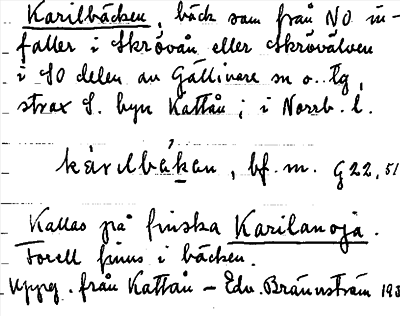 Karilbäcken, bäck som från NO in-
faller i Skrövån eller Skröväloen
i SO delen av Gällivare sn o. tg,
strax S. byn Kattån; i Norrb. l.
karilbäkan, bf. m. G 22, 51
Kallas på finska Karilanoja.
Forell finns i bäcken.
Uppg. från Kattån – Edv. Brännström 193